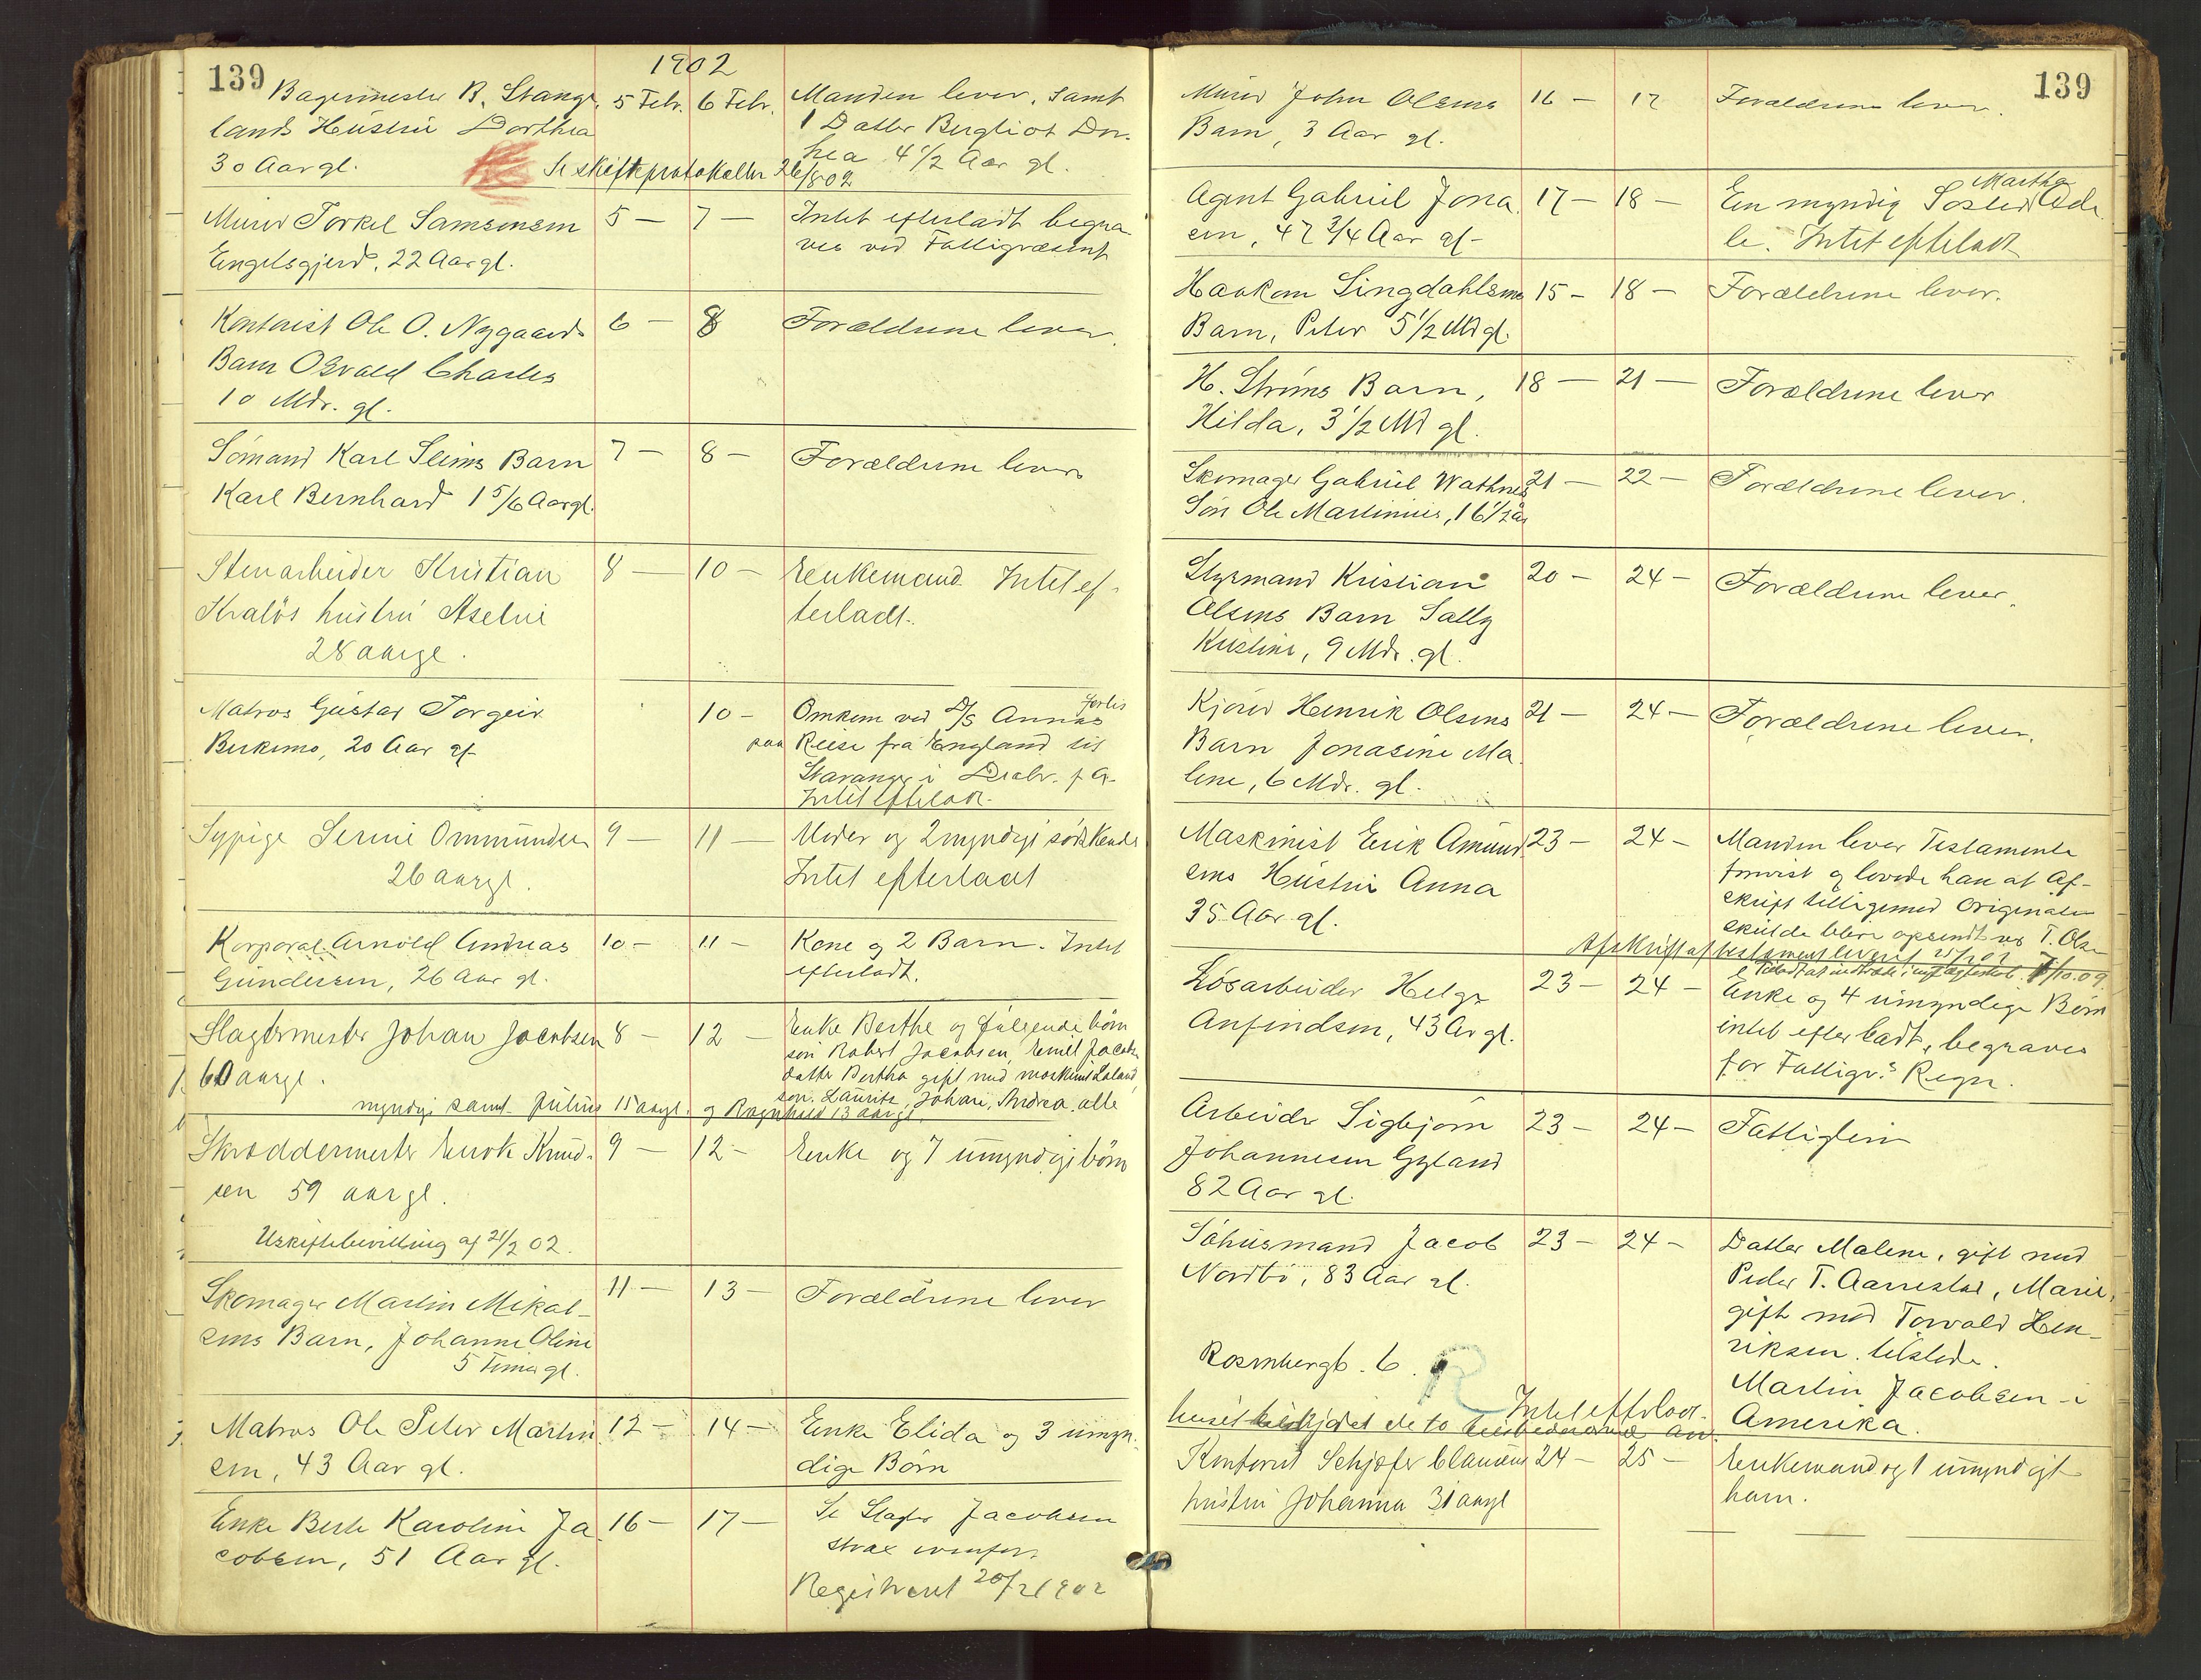 139
1902
Bagermester B. Stange
lands Hustru Dorthea
30 Aar gl.
5 Febr. 6 Febr.
Manden lever, samt
1 Datter Bergliot Dor.
thea 4 1/2 Aar gl.
Se skifteprotokollen
Murer Torkel Samsonsen
Engelsgjerd, 22 Aar gl.
5 — 7 —
Intet efterladt begra
ves ved Fattigvæsent
Kontorist Ole O. Nygaards
Barn Osvald Charles
10 Mdr. gl.
6 — 8
Forældrene lever.
Sømand Karl Seims Barn
Karl Bernhard 1 5/6 Aar gl.
7 — 8 —
Forældrene lever
Stenarbeider Kristian
hustru
28 aar gl.
8 — 10 —
Enkemand. Intet ef-
terladt.
Matros Gustav Torgeir
20 Aar gl
10 —
Omkom ved D/S Annas forlis
paa Reise fra England til
Stavanger i Decbr. f. A.
Intet efterladt.
Sypige Serine Ommundsen
26 aar gl.
9 — 11 —
Moder og 2 myndige sødskende
Intet efterladt
Korporal Arnold Andreas
Gundersen, 26 Aar gl.
10 — 11 —
Kone og 2 Barn. Intet
efterladt.
Slagtermester Johan Jacobsen
60 aar gl.
8 — 12 —
Enke Berthe og følgende børn
søn Robert Jacobsen, Emil Jacobsen
datter Bertha gift med maskinist Laland,
søn Laurits, Johan, Andrea, alle
myndige samt Julius 15 aar gl. og Ragnhild 13 aar gl.
Skræddermester Enok Knud-
sen 59 aar gl.
9 — 12 —
Enke og 7 umyndige børn
Uskiftebevilling af 21/2 02.
Skomager Martin Mikal-
sens Barn, Johanne Oline
5 Timer gl.
11 — 13 —
Forældrene lever
Matros Ole Peter Martin
sen, 43 Aar gl.
12 — 14 —
Enke Elida og 3 umyn.
dige Børn
Enke Berte Karoline Ja
cobsen, 51 Aar gl.
16 — 17 —
Se Slagter Jacobsen
strax ovenfor.
Registreret 20/2 1902
139
Murer John Olsens
Barn, 3 Aar gl.
16 — 17
Forældrene lever.
Agent Gabriel Jona
sen, 47 3/4 Aar gl
17 — 18 —
En myndig Søster Martha Ade
le. Intet efterladt
Haakon Singdahlsens
Barn, Peter 5 1/2 Md gl.
15 — 18 —
Forældrene lever.
H. Strøms Barn,
Hilda, 3 1/2 Md gl.
18 — 21 —
Forældrene lever
Skomager Gabriel Wathnes
Søn Ole Martinius, 16 1/2 år
21 — 22 —
Forældrene lever.
Styrmand Kristian
Olsens Barn Sally
Kristine, 9 Mdr. gl.
20 — 24 —
Forældrene lever.
Kjører Henrik Olsens
Barn Jonasine Ma
lene, 6 Mdr. gl.
21 — 24 —
Forældrene lever.
Maskinist Erik Amund
sens Hustru Anna
35 Aar gl.
23 — 24 —
Manden lever Testamente
forevist og lovede han at Af-
skrift tilligemed Originalen
skulde blive opsendt ved T. Olsen
Afskrift af testament leveret
Løsarbeider Helge
Anfindsen, 43 Ar gl.
23 — 24 —
Enke og 4 umyndige Børn
intet efterladt, begraves
for Fattigv.s Regn.
Arbeider Sigbjørn
Johannesen Gyland
82 Aar gl.
23 — 24 —
Fattiglem
Søhusmand Jacob
Nordbø, 83 Aar gl.
23 — 24 —
Datter Malene, gift med
Peder T. Aarrestad, Marie,
gift med Torvald Hen-
riksen. tilstede.
Martin Jacobsen i
Amerika.
Rosenbergb. 6.
R
Intet efterladt.
Kontorist Schjøfer Clausens
hustru Johanna 31 aar gl
24 — 25 —
Enkemand og 1 umyndigt
barn.